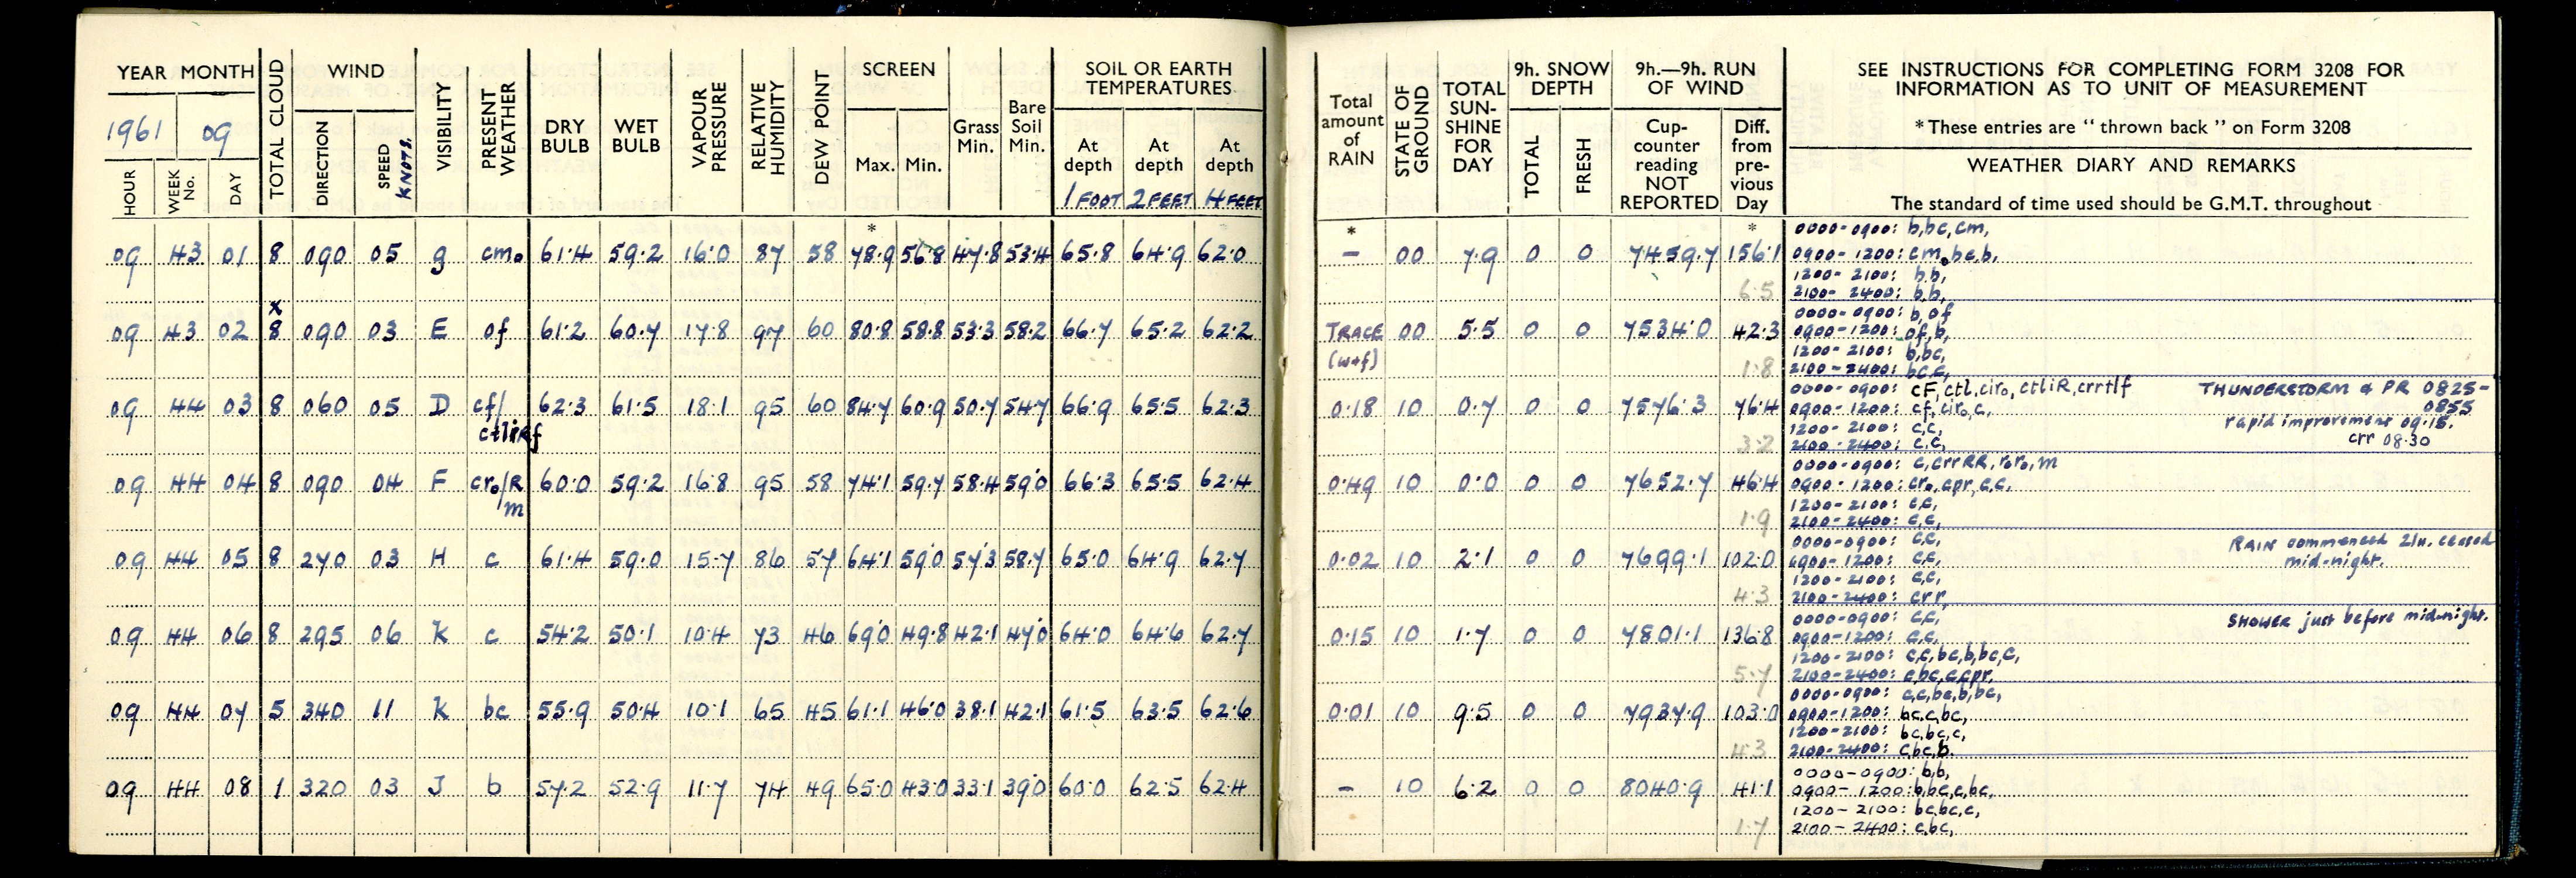 YEAR MONTH
1961 09
HOUR WEEK No. DAY TOTAL CLOUD WIND DIRECTION SPEED KNOTS. VISIBILITY PRESENT WEATHER DRY BULB WET BULB VAPOUR PRESSURE RELATIVE HUMIDITY DEW POINT SCREEN Max. Min. Grass Min. Bare Soil Min. SOIL OR EARTH TEMPERATURES At depth 1 FOOT At depth 2 FEET At depth 4 FEET
Total amount of RAIN STATE OF GROUND TOTAL SUN-SHINE FOR DAY 9h. SNOW DEPTH TOTAL FRESH 9h.—9h. RUN OF WIND Cup-counter reading NOT REPORTED Diff. from pre-vious Day
SEE INSTRUCTIONS FOR COMPLETING FORM 3208 FOR
INFORMATION AS TO UNIT OF MEASUREMENT
* These entries are “ thrown back ” on Form 3208
WEATHER DIARY AND REMARKS
The standard of time used should be G.M.T. throughout
* * *
09 43 01 8 090 05 g cm₀ 61.4 59.2 16.0 87 58 78.9 56.8 47.8 53.4 65.8 64.9 62.0 — 00 7.9 0 0 7459.7 156.1
6.5
0000-0900: b,bc,cm,
0900-1200: cm₀bc,b,
1200-2100: b,b,
2100-2400: b,b,
x
09 43 02 8 090 03 E of 61.2 60.7 17.8 97 60 80.8 58.8 53.3 58.2 66.7 65.2 62.2 TRACE (w+f) 00 5.5 0 0 7534.0 42.3
1.8
0000-0900: b,of
0900-1200: of,b,
1200-2100: b,bc,
2100-2400: bc,c,
09 44 03 8 060 05 D cf/ctlirRf 62.3 61.5 18.1 95 60 84.7 60.9 50.7 54.7 66.9 65.5 62.3 0.18 10 0.7 0 0 7576.3 76.4
3.2
0000-0900: cF,ctl,cir₀,ctliR,crrtlf THUNDERSTORM & PR 0825-0855
0900-1200: cf,cir₀,c, rapid improvement 09.15.
1200-2100: c,c, crr 08.30
2100-2400: c,c,
09 44 04 8 090 04 F cr₀/R m 60.0 59.2 16.8 95 58 74.1 59.7 58.4 59.0 66.3 65.5 62.4 0.49 10 0.0 0 0 7652.7 46.4
1.9
0000-0900: c,crrRR,r₀r₀,m
0900-1200: cr₀,cpr,c,c,
1200-2100: c,c,
2100-2400: c,c,
09 44 05 8 270 03 H c 61.4 59.0 15.7 86 57 64.1 59.0 57.3 58.7 65.0 64.9 62.7 0.02 10 2.1 0 0 7699.1 102.0
4.3
0000-0900: c,c, RAIN commenced 21h. ceased
0900-1200: c,c, mid-night.
1200-2100: c,c,
2100-2400: crr,
09 44 06 8 295 06 K c 54.2 50.1 10.4 73 46 69.0 49.8 42.1 47.0 64.0 64.6 62.7 0.15 10 1.7 0 0 7801.1 136.8
5.7
0000-0900: c,c, SHOWER just before mid-night.
0900-1200: c,c,
1200-2100: c,c,bc,b,bc,c,
2100-2400: c,bc,c,cpr,
09 44 07 5 340 11 K bc 55.9 50.4 10.1 65 45 61.1 46.0 38.1 42.1 61.5 63.5 62.6 0.01 10 9.5 0 0 7937.9 103.0
4.3
0000-0900: c,c,bc,b,bc,
0900-1200: bc,c,bc,
1200-2100: bc,bc,c,
2100-2400: c,bc,b.
09 44 08 1 320 03 J b 57.2 52.9 11.7 74 49 65.0 43.0 33.1 39.0 60.0 62.5 62.4 — 10 6.2 0 0 8040.9 41.1
1.7
0000-0900: b,b,
0900-1200: b,bc,c,bc,
1200-2100: bc,bc,c,
2100-2400: c,bc,